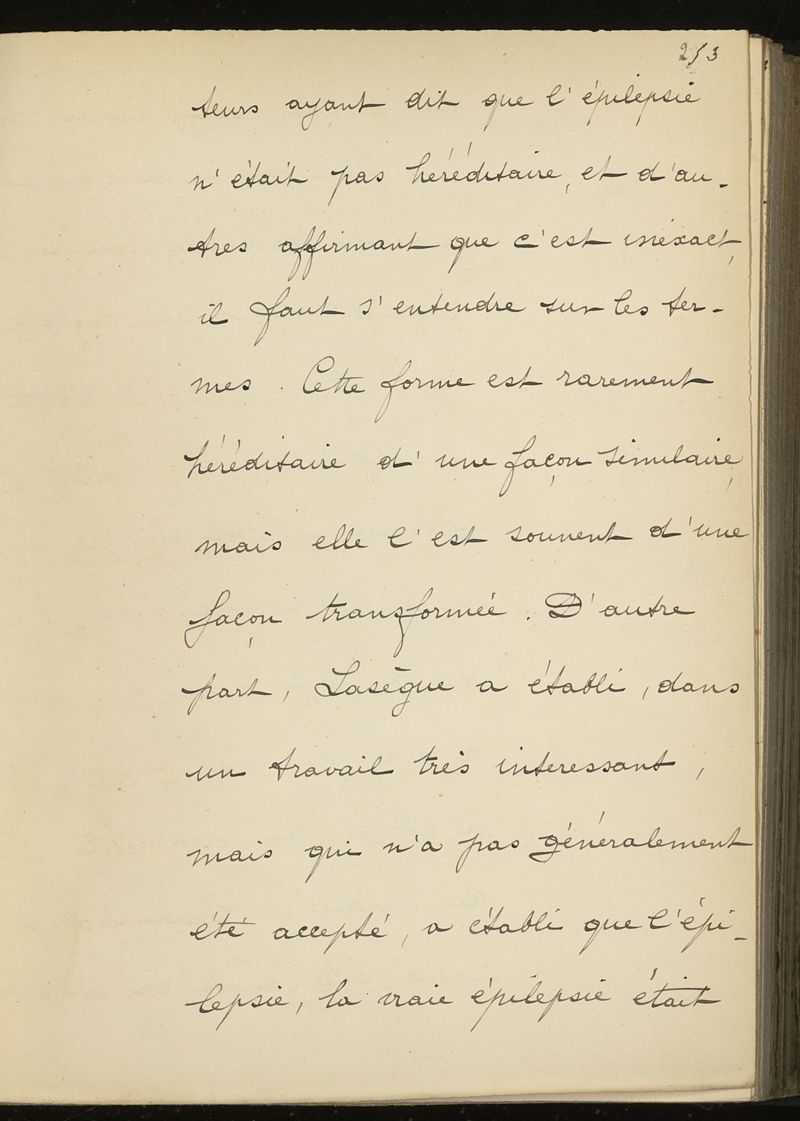 253
teurs ayant dit que l'épilepsie
n'était pas héréditaire, et d'au-
tres affirmant que c'est inéxact,
il faut s'entendre sur les ter-
mes. Cette forme est rarement
héréditaire d'une façon similaire,
mais elle l'est souvent d'une
façon transformée. D'autre
part, Lasègue a établi, dans
un travail très interessant,
mais qui n'a pas généralement
été accepté, a établi que l'épi-
lepsie, la vraie épilepsie était